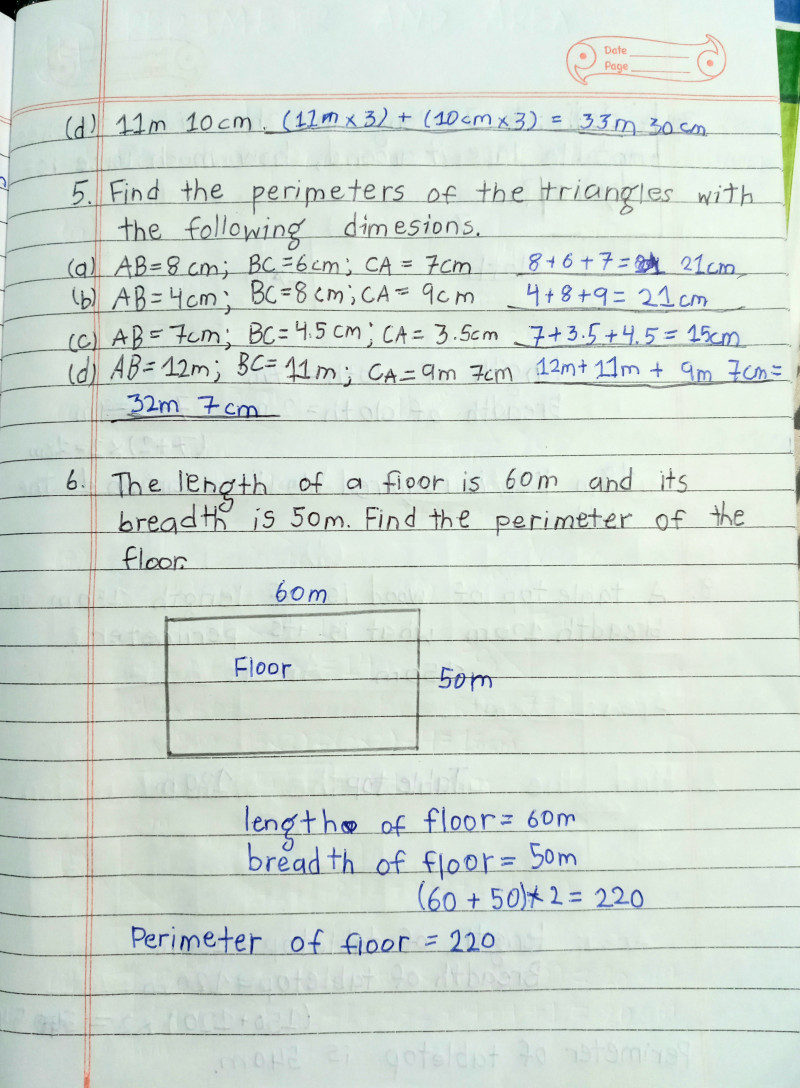 Date
Page
(d) 11m 10cm. (11m x 3) + (10cm x 3) = 33m 30cm
5. Find the perimeters of the triangles with
the following dimesions.
(a) AB=8cm; BC=6cm; CA = 7cm 8+6+7= 21cm
(b) AB=4cm; BC=8cm; CA= 9cm 4+8+9= 21cm
(c) AB=7cm; BC=4.5cm; CA= 3.5cm 7+3.5+4.5=15cm
(d) AB=12m; BC=11m; CA=9m 7cm 12m+11m+ 9m 7cm=
32m 7cm
6. The length of a floor is 60m and its
breadth is 50m. Find the perimeter of the
floor.
60m
Floor
50m
length of floor= 60m
breadth of floor= 50m
(60 + 50)*2 = 220
Perimeter of floor = 220